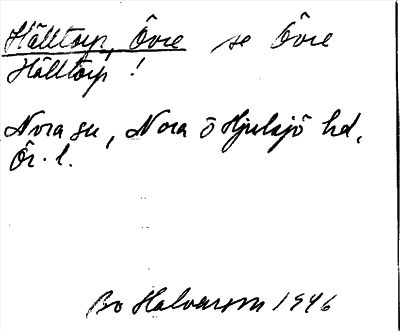 Hälltorp, Övre se Övre
Hälltorp!
Nora sn, Nora o Hjulsjö hd,
Ör. l.
Bo Halvarson 1946